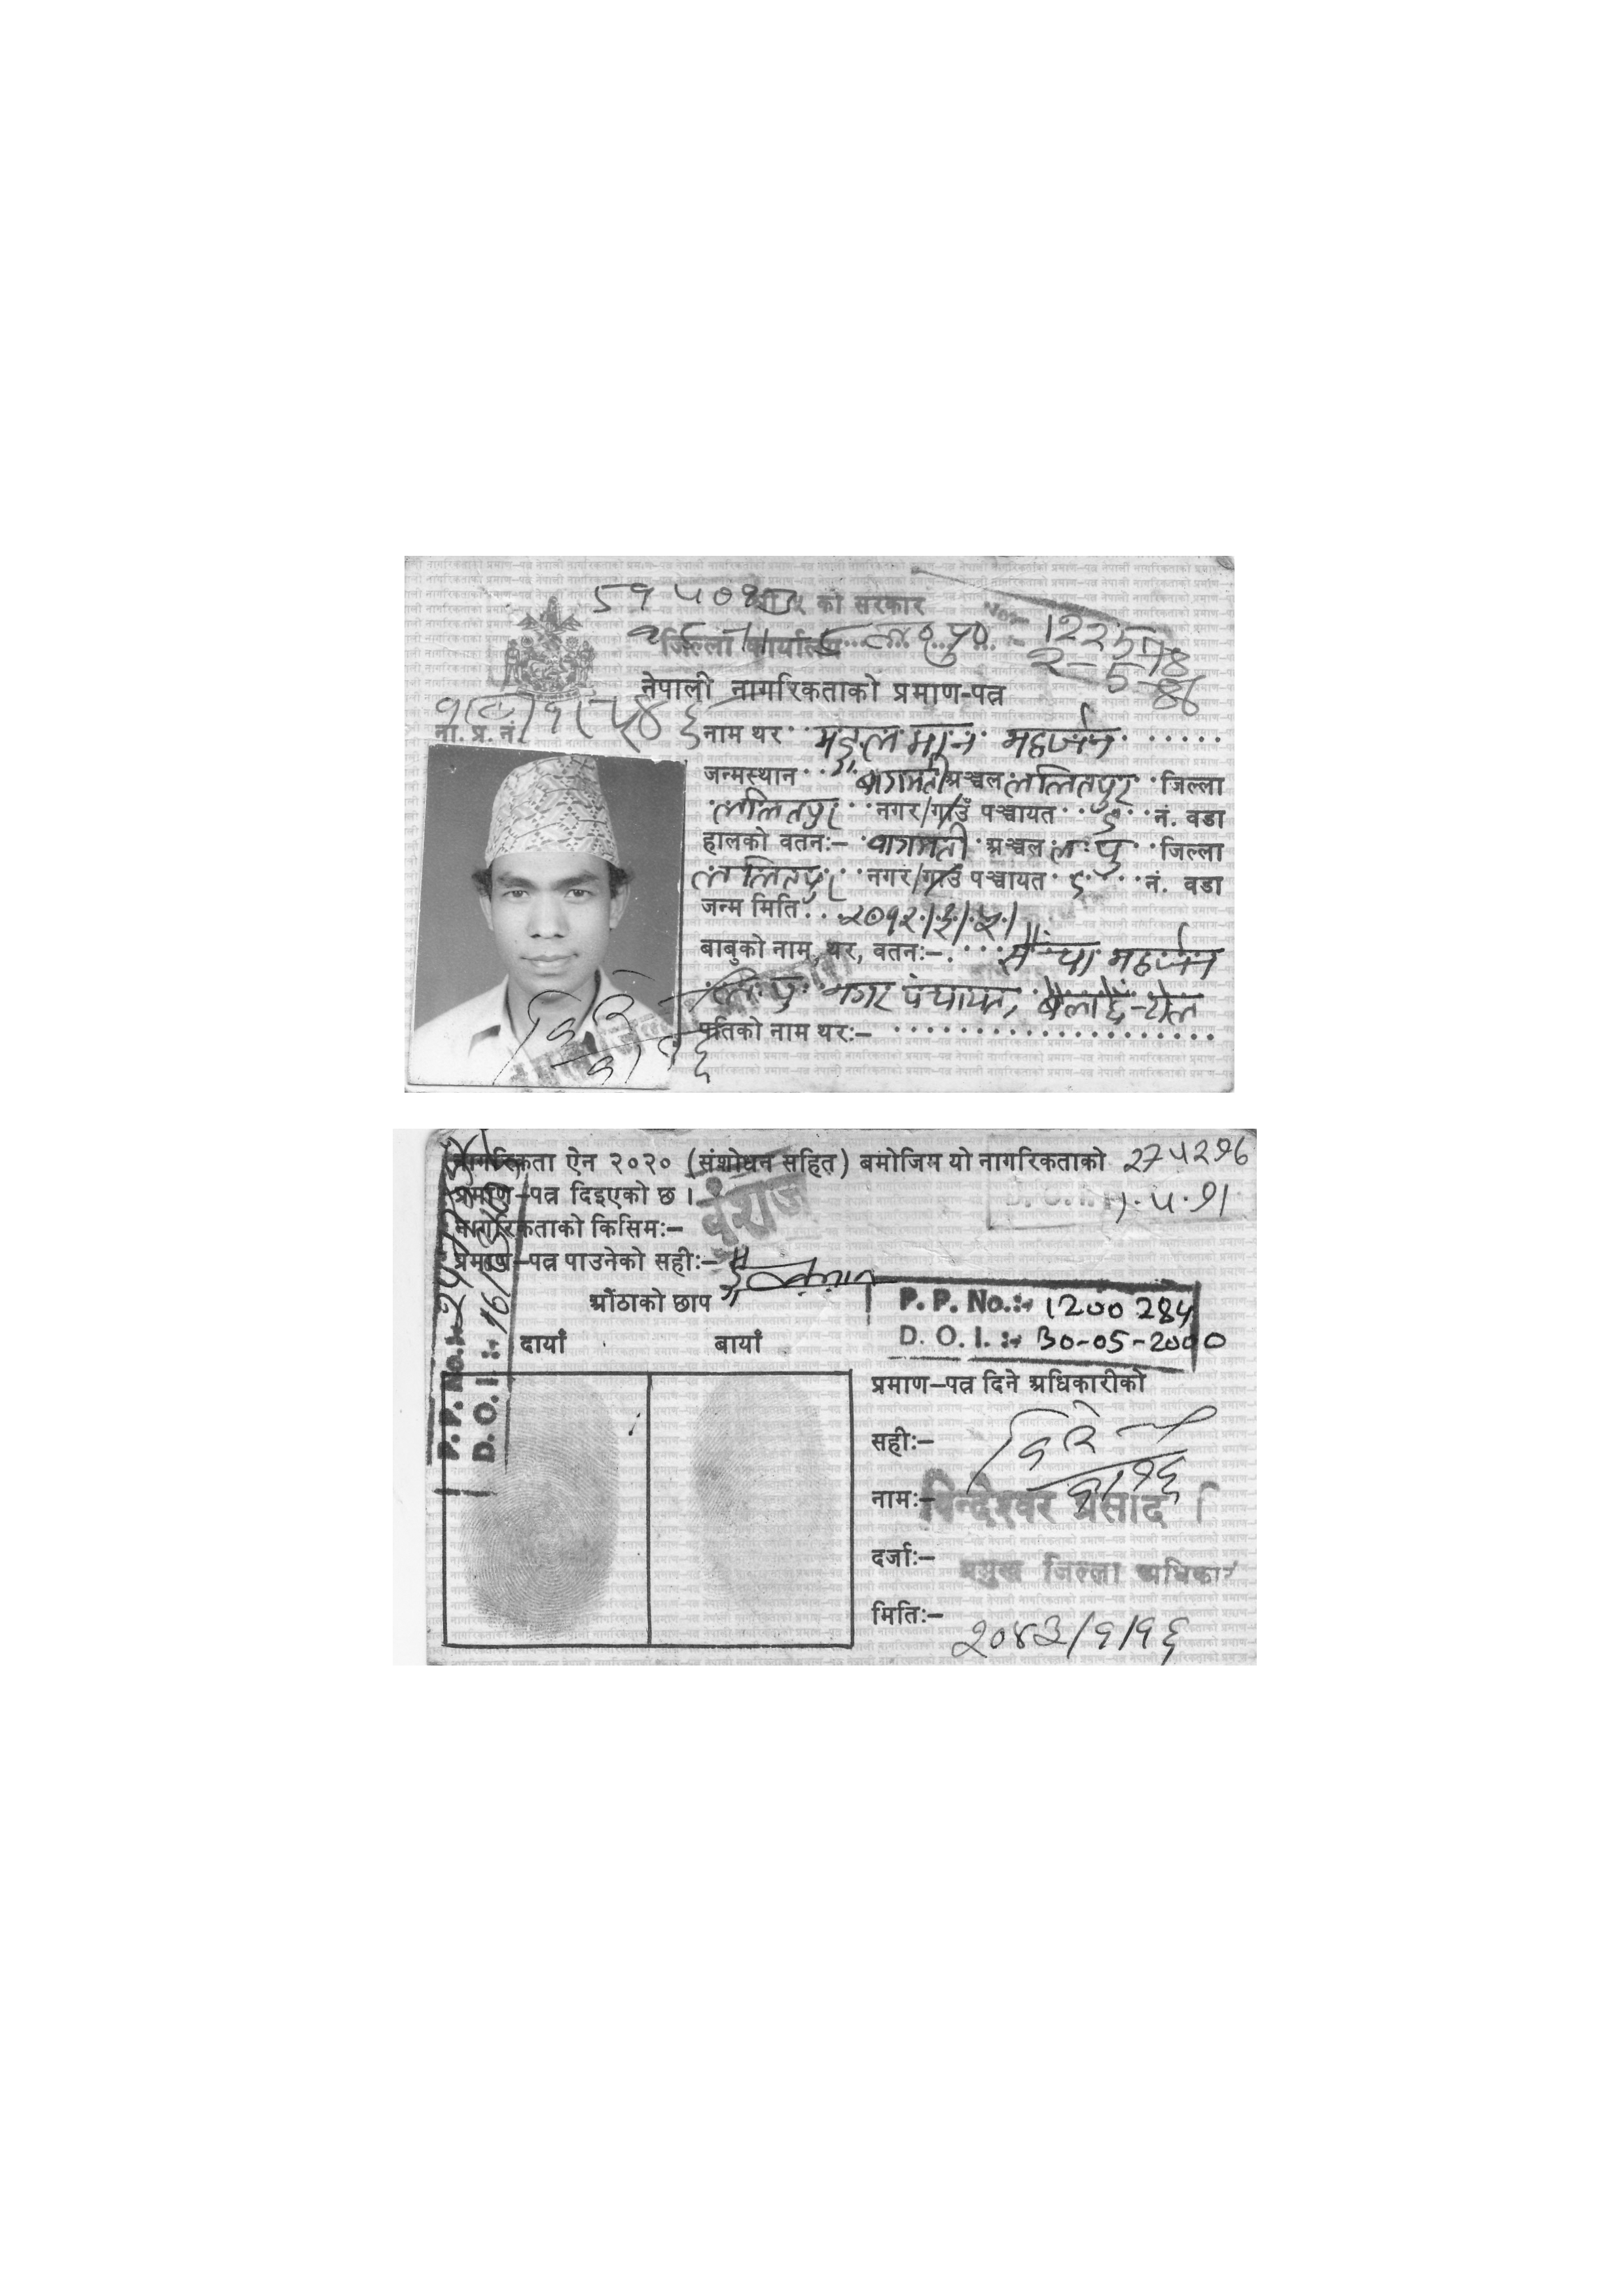 को सरकार
जिल्ला कार्यालय
नेपाली नागरिकताको प्रमाण-पत्र
ना. प्र. नं.
नाम थर मङ्गल मान महर्जन
जन्मस्थान बागमती अञ्चल ललितपुर जिल्ला
ललितपुर नगर/गाउँ पञ्चायत ९ नं. वडा
हालको वतनः- बागमती अञ्चल ल. पु. जिल्ला
ललितपुर नगर/गाउँ पञ्चायत ९ नं. वडा
जन्म मिति: २०१२।३।५।
बाबुको नाम, थर, वतनः- महर्जन
ल. पु. नगर पंचायत,
पतिको नाम थरः-
नागरिकता ऐन २०२० (संशोधन सहित) बमोजिम यो नागरिकताको
प्रमाण-पत्र दिइएको छ ।
नागरिकताको किसिमः- वंशज
प्रमाण-पत्र पाउनेको सहीः-
औंठाको छाप
दायाँ बायाँ
P. P. No.:- 1200284
D. O. I. :- 30-05-2000
P. P. No.:-
D. O. I. :-
प्रमाण-पत्र दिने अधिकारीको
सहीः-
नामः- बिन्देश्वर प्रसाद
दर्जाः- प्रमुख जिल्ला अधिकारी
मितिः- २०४३/१/१६